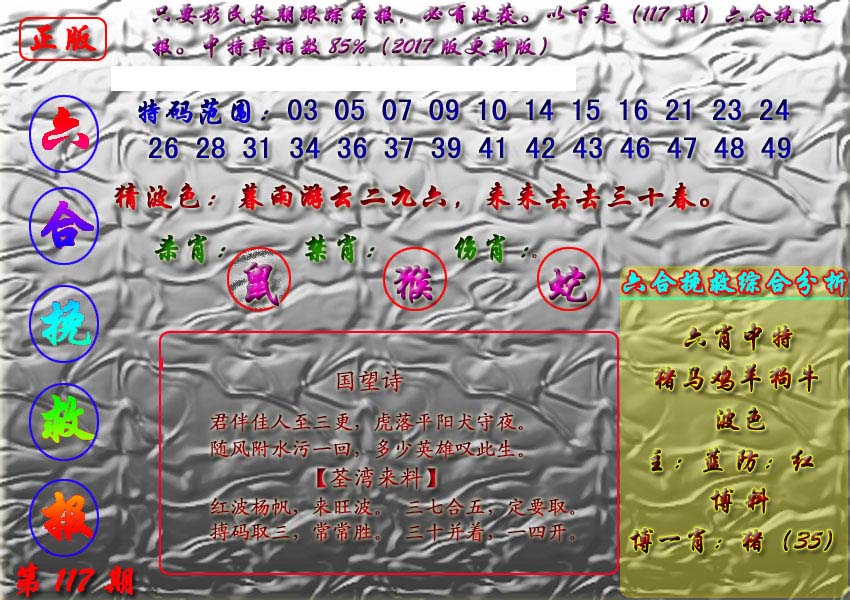 正版
只要彩民长期跟踪本报，必有收获。以下是（117期）六合挽救
报。中特率指数85%（2017版更新版）
六合挽救报
第117期
特码范围：03 05 07 09 10 14 15 16 21 23 24
26 28 31 34 36 37 39 41 42 43 46 47 48 49
猜波色：暮雨游云二九六，来来去去三十春。
杀肖：鼠 禁肖：猴 伤肖：蛇。
国望诗
君伴佳人至三更，虎落平阳犬守夜。
随风附水污一回，多少英雄叹此生。
【荃湾来料】
红波杨帆，来旺波。 三七合五，定要取。
搏码取三，常常胜。 三十并着，一四开。
六合挽救综合分析
六肖中特
猪马鸡羊狗牛
波色
主：蓝防：红
博料
博一肖：猪（35）